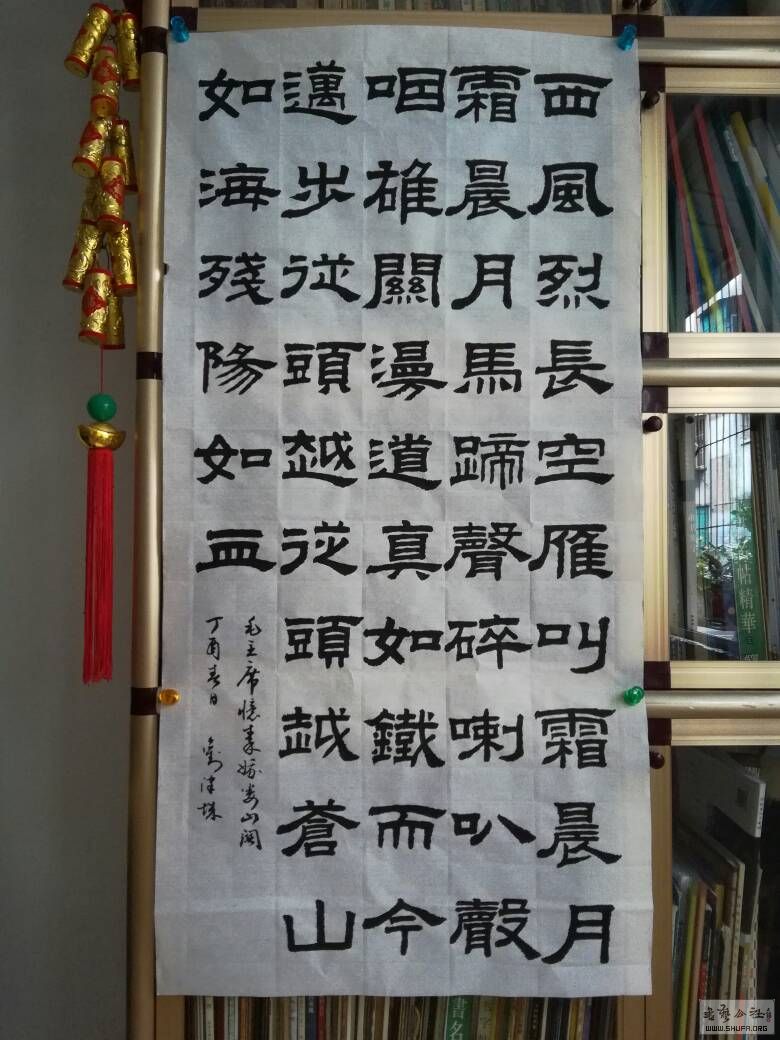 西風烈長空雁叫霜晨月
霜晨月馬蹄聲碎喇叭聲
咽雄關漫道真如鐵而今
邁步從頭越從頭越蒼山
如海殘陽如血
毛主席憶秦娥娄山関
丁酉春日
帖精華
書名
書藝公社
WWW.SHUFA.ORG